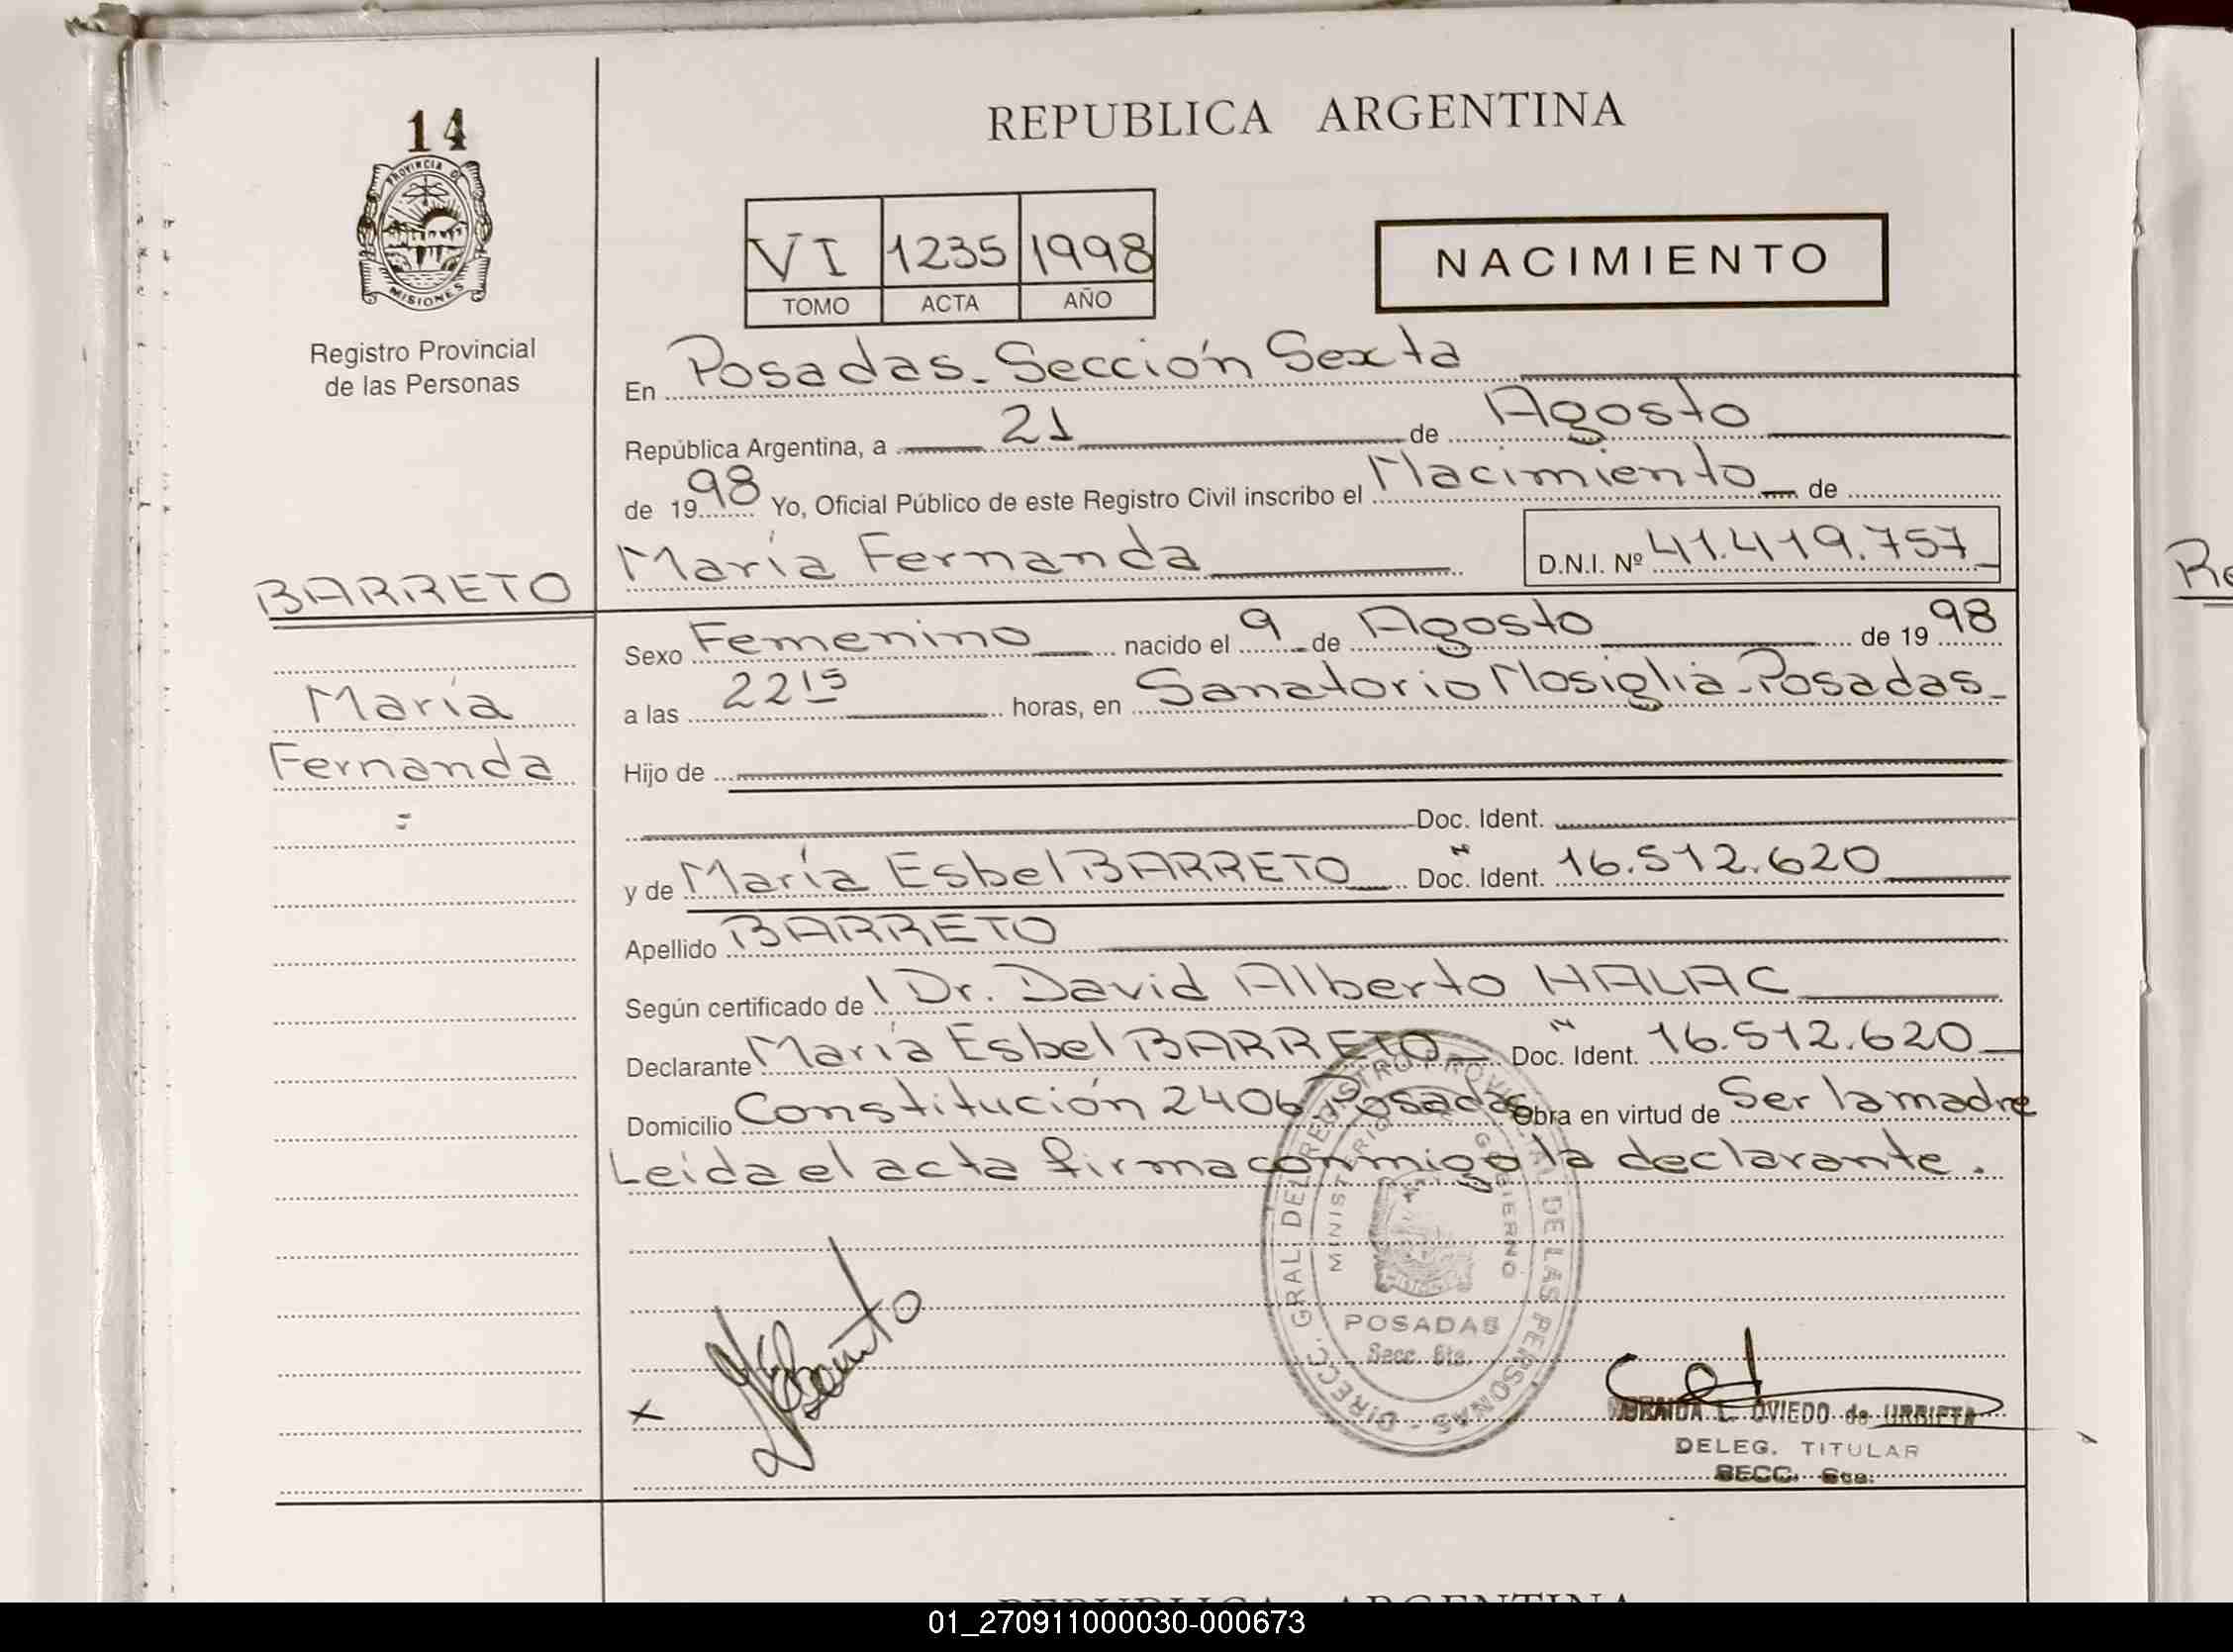 14
REPUBLICA ARGENTINA
PROVINCIA DE
MISIONES
VI 1235 1998
TOMO ACTA AÑO
NACIMIENTO
Registro Provincial
de las Personas
En Posadas - Sección Sexta
República Argentina, a 21 de Agosto
de 1998 Yo, Oficial Público de este Registro Civil inscribo el Nacimiento de
María Fernanda
D.N.I. Nº 41.419.757
BARRETO
María
Fernanda
Sexo Femenino nacido el 9 de Agosto de 1998
a las 22 15 horas, en Sanatorio Nosiglia - Posadas -
Hijo de
Doc. Ident.
y de María Esbel BARRETO Doc. Ident. 16.512.620
Apellido BARRETO
Según certificado de Dr. David Alberto HALAC
Declarante María Esbel BARRETO Doc. Ident. 16.512.620
Domicilio Constitución 2406 Posadas Obra en virtud de Ser la madre
Leída el acta firma conmigo la declarante.
DIRECC. GRAL. DEL REGISTRO PROVINCIAL DE LAS PERSONAS -
MINISTERIO GOBIERNO
POSADAS
Secc. 6ta.
x
L. OVIEDO de URRIETA
DELEG. TITULAR
SECC. 6ta.
REPUBLICA ARGENTINA
01_270911000030-000673